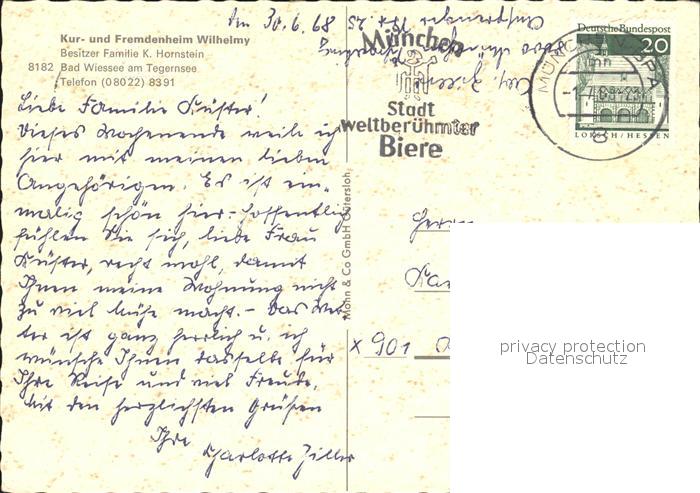 Am 30.6.68
Kur- und Fremdenheim Wilhelmy
Besitzer Familie K. Hornstein
8182 Bad Wiessee am Tegernsee
Telefon (08022) 8391
Liebe Familie Küster!
Dieses Wochenende weile ich
hier mit meinen lieben
Angehörigen. Es ist ein-
malig schön hier - hoffentlich
fühlen Sie sich, liebe Frau
Küster, recht wohl, damit
Ihnen meine Wohnung nicht
zu viel Mühe macht. - Das Wet-
ter ist ganz herrlich u. ich
wünsche Ihnen dasselbe für
Ihre Reise und viel Freude.
Mit den herzlichsten Grüßen
Ihre
Charlotte Ziller
Mohn & Co GmbH Gütersloh
München
Stadt
weltberühmter
Biere
MÜNCHEN
-1.-7.68-23
g
Deutsche Bundespost
20
LORSCH/HESSEN
x 901
privacy protection
Datenschutz